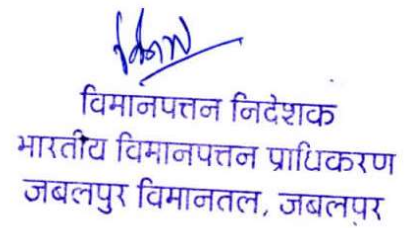 विमानपत्तन निदेशक
भारतीय विमानपत्तन प्राधिकरण
जबलपुर विमानतल, जबलपुर